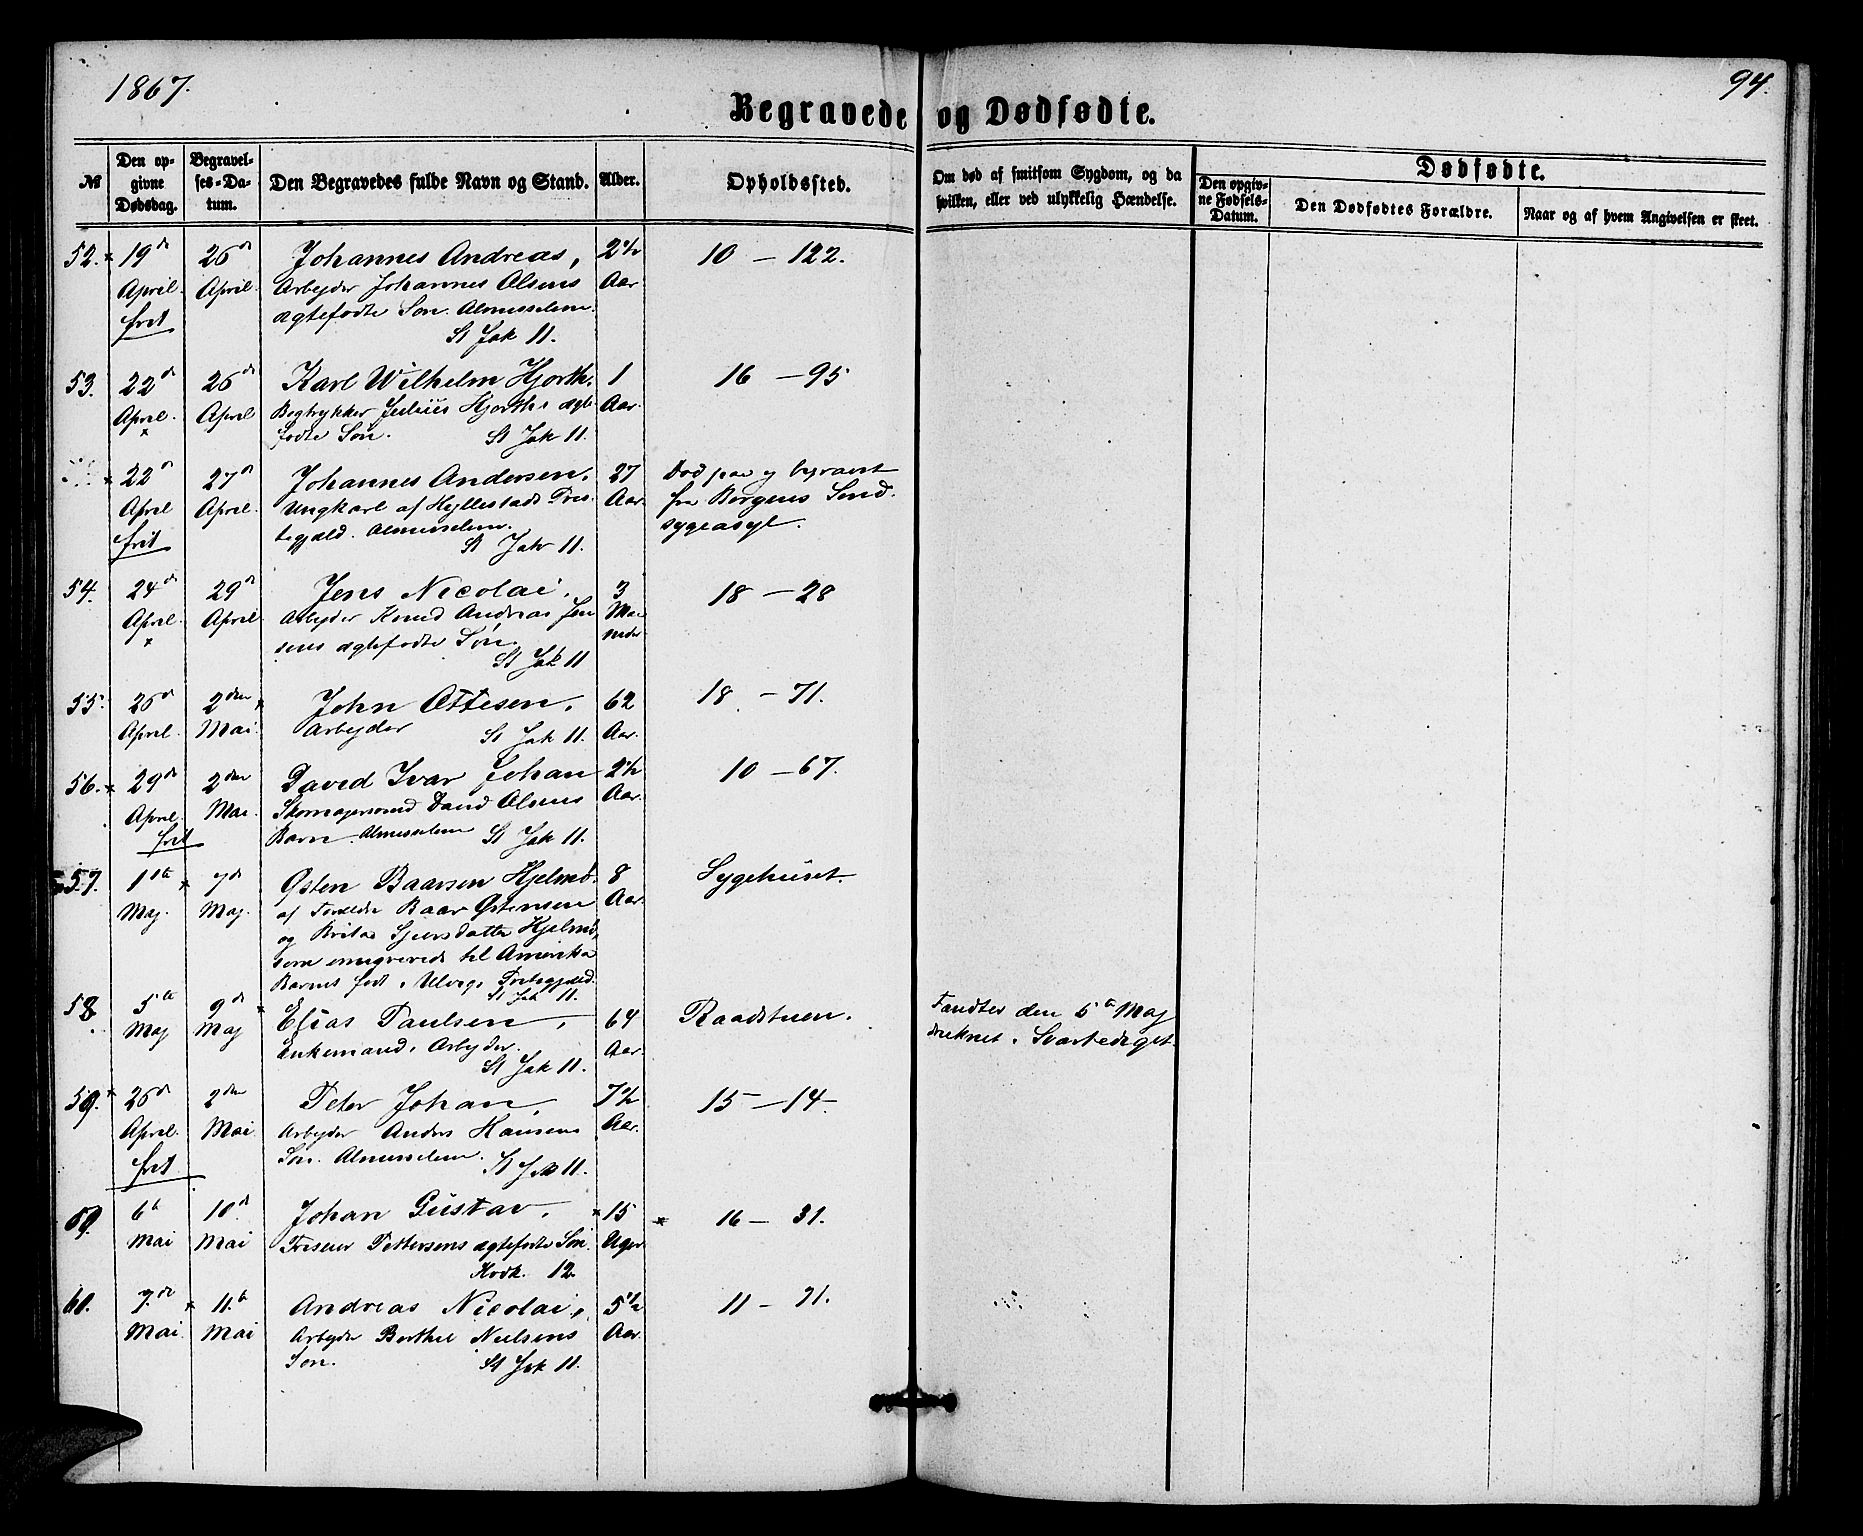 1867.
94.
Begravede og Dødfødte.
№
Den op-
givne
Dødsdag.
Begravel-
ses-Da-
tum.
Den Begravedes fulde Navn og Stand.
Alder.
Opholdssted.
Om død af smitsom Sygdom, og da
hvilken, eller ved ulykkelig Hændelse.
Dødfødte.
Den opgiv-
ne Fødsels-
Datum.
Den Dødfødtes Forældre.
Naar og af hvem Angivelsen er skeet.
52. 19de 26de Johannes Andreas, 2½ 10 - 122.
April. April. Arbeyder Johannes Olsens Aar
frit ægtefødte Søn. Almisselem.
St Jak 11.
53. 22de 26de Karl Wilhelm Hjorth. 1 16 - 95
April. April Bogtrykker Julius Hjorths ægte Aar.
fødte Søn. St Jak 11.
22de 27de Johannes Andersen. 27 Død paa og begravet
April April. Ungkarl af Hyllestads Præs- Aar. fra Bergens Sind-
frit tegjæld. Almisselem. sygeasyl.
St Jak 11.
54. 24de 29de Jens Nicolai. 3 18 - 28
April. April. Arbeyder Knud Andreas Jen Maa
sens ægtefødte Søn. neder
St Jak 11
55. 26de 2den John Ottesen. 62 18 - 71.
April. Mai. Arbeyder St Jak 11. Aar.
56. 29de 2den David Ivar Johan 2½ 10 - 67.
April. Mai. Skomagersvend David Olsens Aar.
frit Barn. Almisselem St Jak 11.
57. 1ste 7de Østen Baarsen Hjelmd. 8 Sygehuset.
Maj. Maj. af Forældre Baar Østensen Aar.
og Brita Sjursdatter Hjelmd,
som emigrerede til Amerika
Barnet født i Ulvigs Prestegjæld.
St Jak 11.
58. 5te 9de Elias Paulsen, 64 Raadstuen. Fandtes den 5te Maj
Maj Maj Enkemand, Arbeyder. Aar. druknet i Svartediget.
St Jak 11.
59. 26de 2den Peter Johan, 7½ 15 - 14.
April. Mai. Arbeyder Anders Hansens Aar.
frit Søn. Almisselem. St Jak 11.
59. 6te 10de Johan Gustav. 15 16 - 31.
Mai Mai Friseur Pettersens ægtefødte Søn. Uger
Kodk. 12.
60. 7de 11te Andreas Nicolai, 5½ 11 - 71.
Mai. Mai Arbeyder Berthel Nielsens Aar.
Søn. St Jak 11.